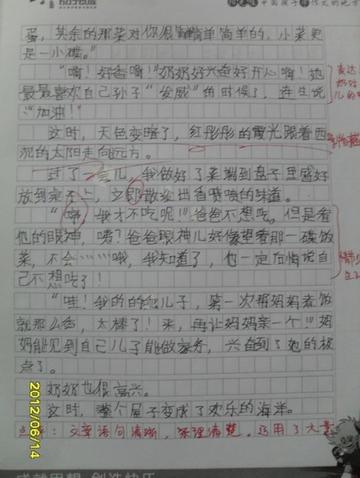 蛋,其余的那菜对你很简单简单的,小菜更
是一小碟。”
“嗬!好香啊!”奶奶好兴奋好开心啊!她
最最喜欢自己孙子“发威”的时候了,连连说
“加油!”
这时,天色变暗了,红彤彤的霞光跟着西
沉的太阳走向远方。
过了一会儿,我做好了菜端到盘子里盛好
放到桌子上,立即散发出香喷喷的味道。
我才不吃呢!”爸爸不想吃,但是看
他的眼神,嗬?爸爸眼神儿好像望着那一碟饭
菜,不会……哦,我知道了,他一定后悔说自
己不想吃了!
“哇!我的的乖儿子,第一次帮妈妈煮饭
就那么香,太棒了!来,再让妈妈亲一个!”妈
妈能见到自己儿子能做家务,兴奋到了她的极
点了。
奶奶也很高兴。
这时,整个屋子变成了欢乐的海洋。
点评:文章语句清晰,条理清楚,运用了大量
2012/06/14